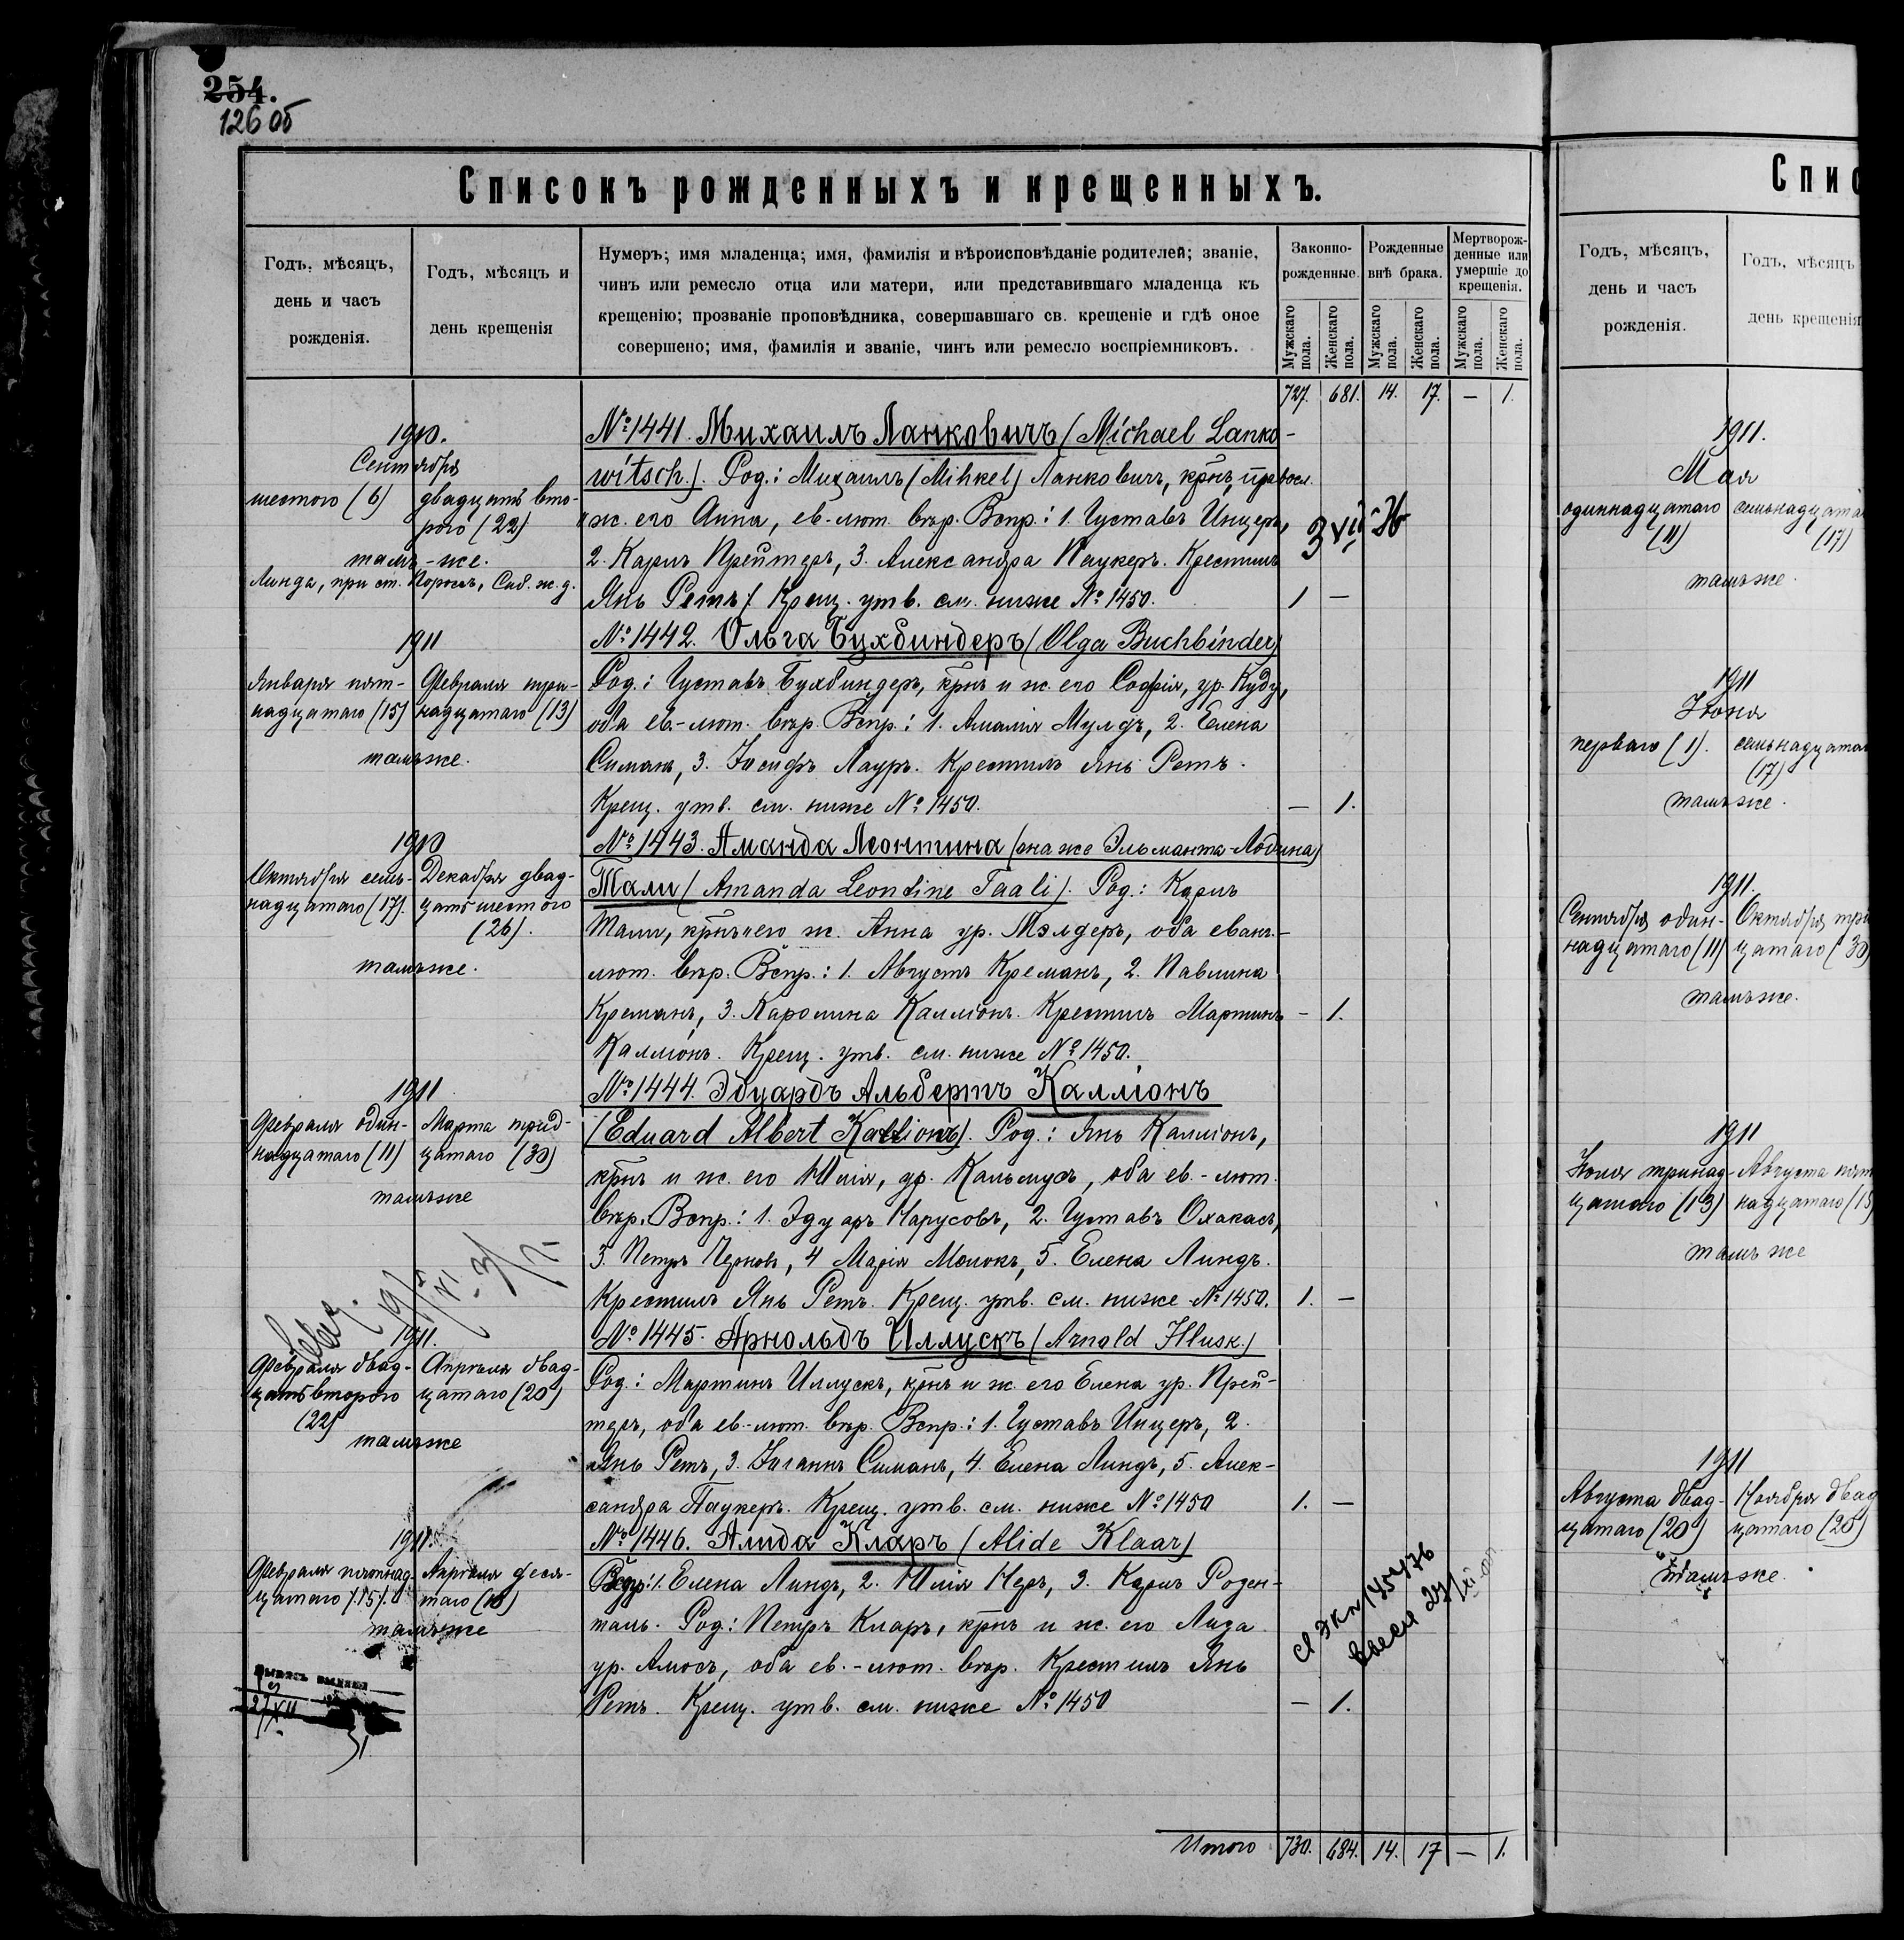 254.
126 об
Списокъ рожденныхъ и крещенныхъ.
Годъ, мѣсяцъ,
день и часъ
рожденія.
Годъ, мѣсяцъ и
день крещенія
Нумеръ; имя младенца; имя, фамилія и вѣроисповѣданіе родителей; званіе,
чинъ или ремесло отца или матери, или представившаго младенца къ
крещенію; прозваніе проповѣдника, совершавшаго св. крещеніе и гдѣ оное
совершено; имя, фамилія и званіе, чинъ или ремесло воспріемниковъ.
Законно-
рожденные.
Рожденные
внѣ брака.
Мертворож-
денные или
умершіе до
крещенія.
Мужскаго пола.
Женскаго пола.
Мужскаго пола.
Женскаго пола.
Мужскаго пола.
Женскаго пола.
727. 681. 14. 17. — 1.
1910.
Сентября
шестого (6)
двадцать вто-
рого (22)
тамъ-же.
Линда, при ст. Порогъ, Сѣв. ж. д.
№ 1441. Михаилъ Ланковичъ (Michael Lanko-
witsch). Род.: Михаилъ (Mihkel) Ланковичъ, крнъ, правосл.
и ж. его Анна, ев.-лют. вѣр. Вспр.: 1. Густавъ Инцеръ,
2. Карлъ Прейтеръ, 3. Александра Паукеръ. Крестилъ
Янъ Ретъ. Крещ. утв. см. ниже № 1450.
1 —
1911
Января пят-
надцатаго (15)
Февраля три-
надцатаго (13)
тамъже.
№ 1442. Ольга Бухбиндеръ (Olga Buchbinder)
Род.: Густавъ Бухбиндеръ, крнъ и ж. его Софія, ур. Куду,
оба ев.-лют. вѣр. Вспр.: 1. Амалія Мулдъ, 2. Елена
Симанъ, 3. Іосифъ Лауръ. Крестилъ Янъ Ретъ.
Крещ. утв. см. ниже № 1450.
— 1.
1910
Октября семь-
надцатаго (17).
Декабря двад-
цать шестого
(26).
тамъже.
№ 1443. Аманда Леонтина (она же Эльманта-Лодина)
Тали (Amanda Leontine Taali). Род.: Карлъ
Тали, крнъ и его ж. Анна ур. Мэлдеръ, оба еванг.-
лют. вѣр. Вспр.: 1. Августъ Креманъ, 2. Павлина
Креманъ, 3. Каролина Калліонъ. Крестилъ Мартинъ
— 1.
Калліонъ. Крещ. утв. см. ниже № 1450.
1911
Февраля один-
надцатаго (11)
Марта трид-
цатаго (30)
тамъже
№ 1444. Эдуардъ Альбертъ Калліонъ
(Eduard Albert Kallionъ). Род.: Янъ Калліонъ,
крнъ и ж. его Юлія, ур. Кальмусъ, оба ев.-лют.
вѣр. Вспр.: 1. Эдуаръ Нарусовъ, 2. Густавъ Охакасъ,
3. Петръ Черновъ, 4 Марія Молокъ, 5. Елена Линдъ.
Крестилъ Янъ Ретъ. Крещ. утв. см. ниже № 1450.
1. —
1911.
Февраля двад-
цать второго
(22)
Апрѣля двад-
цатаго (20)
тамъже
№ 1445. Арнольдъ Иллускъ (Arnold Illusk)
Род.: Мартинъ Иллускъ, крнъ и ж. его Елена ур. Прей-
теръ, оба ев.-лют. вѣр. Вспр.: 1. Густавъ Инцеръ, 2.
Янъ Ретъ, 3. Іоганнъ Симанъ, 4. Елена Линдъ, 5. Алек-
сандра Паукеръ. Крещ. утв. см. ниже № 1450
1. —
1911.
Февраля пятнад-
цатаго (15).
Апрѣля деся-
таго (10)
тамъже
№ 1446. Алида Кларъ (Alide Klaar)
Вспр.: 1. Елена Линдъ, 2. Юлія Неръ, 3. Карлъ Розен-
таль. Род.: Петръ Кларъ, крнъ и ж. его Лиза
ур. Амосъ, оба ев.-лют. вѣр. Крестилъ Янъ
Ретъ. Крещ. утв. см. ниже № 1450
— 1.
Итого 730. 684. 14. 17 — 1.
Спис
Годъ, мѣсяцъ,
день и часъ
рожденія.
Годъ, мѣсяцъ
день крещенія
1911.
Мая
одиннадцатаго
(11)
семьнадцата
(17)
тамъже.
1911
Іюня
перваго (1).
семьнадцата
(17)
тамъже.
1911.
Сентября один-
надцатаго (11)
Октября три
цатаго (30)
тамъже.
1911
Іюля тринад-
цатаго (13)
Августа пят
надцатаго (15
тамъ же
1911
Августа двад-
цатаго (20)
Ноября двад
цатаго (20)
тамъже.